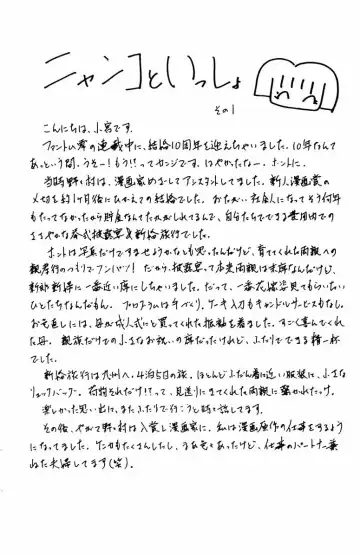 ニャンコといっしょ
その1
こんにちは、小宮です。
ファントム零の連載中に、結婚10周年を迎えちゃいました。10年なんて
あっという間。うそー!もう!?ってカンジです。はやかったなー、ホントに。
当時野々村は、漫画家めざしてアシスタントしてました。新人漫画賞の
〆切を約1ヶ月後にひかえての結婚でした。おたがい社会人になってそう何年
もたってなかったから財産なんてたかがしれてるんで、自分たちでできる費用内での
ささやかな挙式披露宴&新婚旅行でした。
ホントは写真だけですませようかなとも思ったんだけど、育ててくれた両親への
親孝行のつもりでフンパツ!だから、披露宴って本来両親は末席なんだけど、
新郎新婦に一番近い席にしちゃいました。だって、一番花嫁姿見てもらいたい
ひとたちなんだもん。プログラムは手づくり。ケーキ入刀もキャンドルサービスもなし。
お色直しには、母が成人式にと買ってくれた振袖を着ました。すごく喜んでくれ
た母。親族だけでの小さなお祝いの席だったけれど、ふたりでできる精一杯
でした。
新婚旅行は九州へ、4泊5日の旅。ほとんどふだん着に近い服装に、小さな
リュックバッグ。荷物それだけ!?って、見送りにきてくれた両親に驚かれたっけ。
楽しかった思い出に、またふたりで行こうと時々話してます。
その後、やがて野々村は入賞し漫画家に、私は漫画原作の仕事をするよう
になってました。ケンカもたくさんしたし、まあ色々あったけど、仕事のパートナー兼
ねた夫婦してます(笑)。